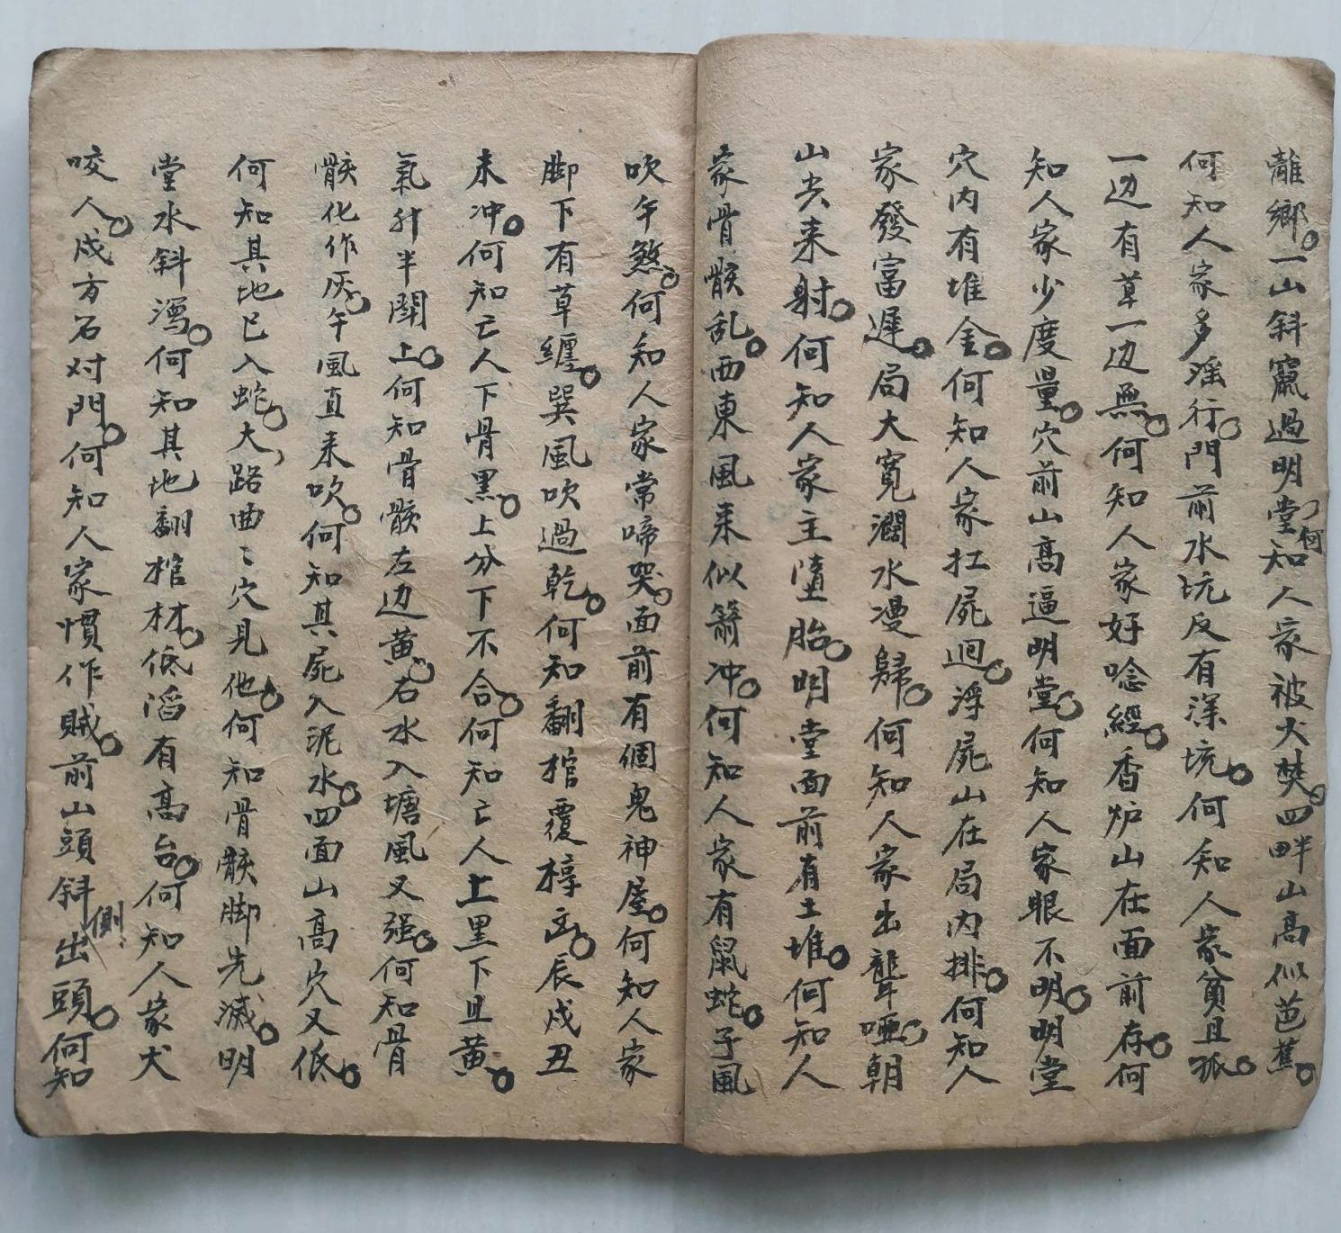 離鄉。一山斜竄過明堂，何知人家被火焚。四畔山高似芭蕉。
何知人家多瑶行。門前水坑反有深坑。何知人家貧且孤。
一边有草一边無。何知人家好唸經。香炉山在面前存。何
知人家少度量。穴前山高逼明堂。何知人家眼不明。明堂
穴内有堆金。何知人家扛屍迴。浮屍山在局内排。何知人
家發富遲。局大寛濶水漫歸。何知人家出聾啞。朝
山尖来射。何知人家主墮胎。明堂面前有土堆。何知人
家骨骸乱。西東風来似箭冲。何知人家有鼠蛇。子風
吹午煞。何知人家常啼哭。面前有個鬼神屋。何知人家
脚下有草纏。巽風吹過乾。何知翻棺覆槨凶。辰戌丑
未冲。何知亡人下骨黑。上分下不合。何知亡人上黑下且黄。
氣升半開上。何知骨骸左边黄。右水入塘風又强。何知骨
骸化作灰。午風直来吹。何知其屍入泥水。四面山高穴又低。
何知其地已入蛇。大路曲〻穴見他。何知骨骸脚先滅。明
堂水斜瀉。何知其地翻棺材。低滔有高台。何知人家犬
咬人。戌方石对門。何知人家慣作賊。前山頭斜側出頭。何知